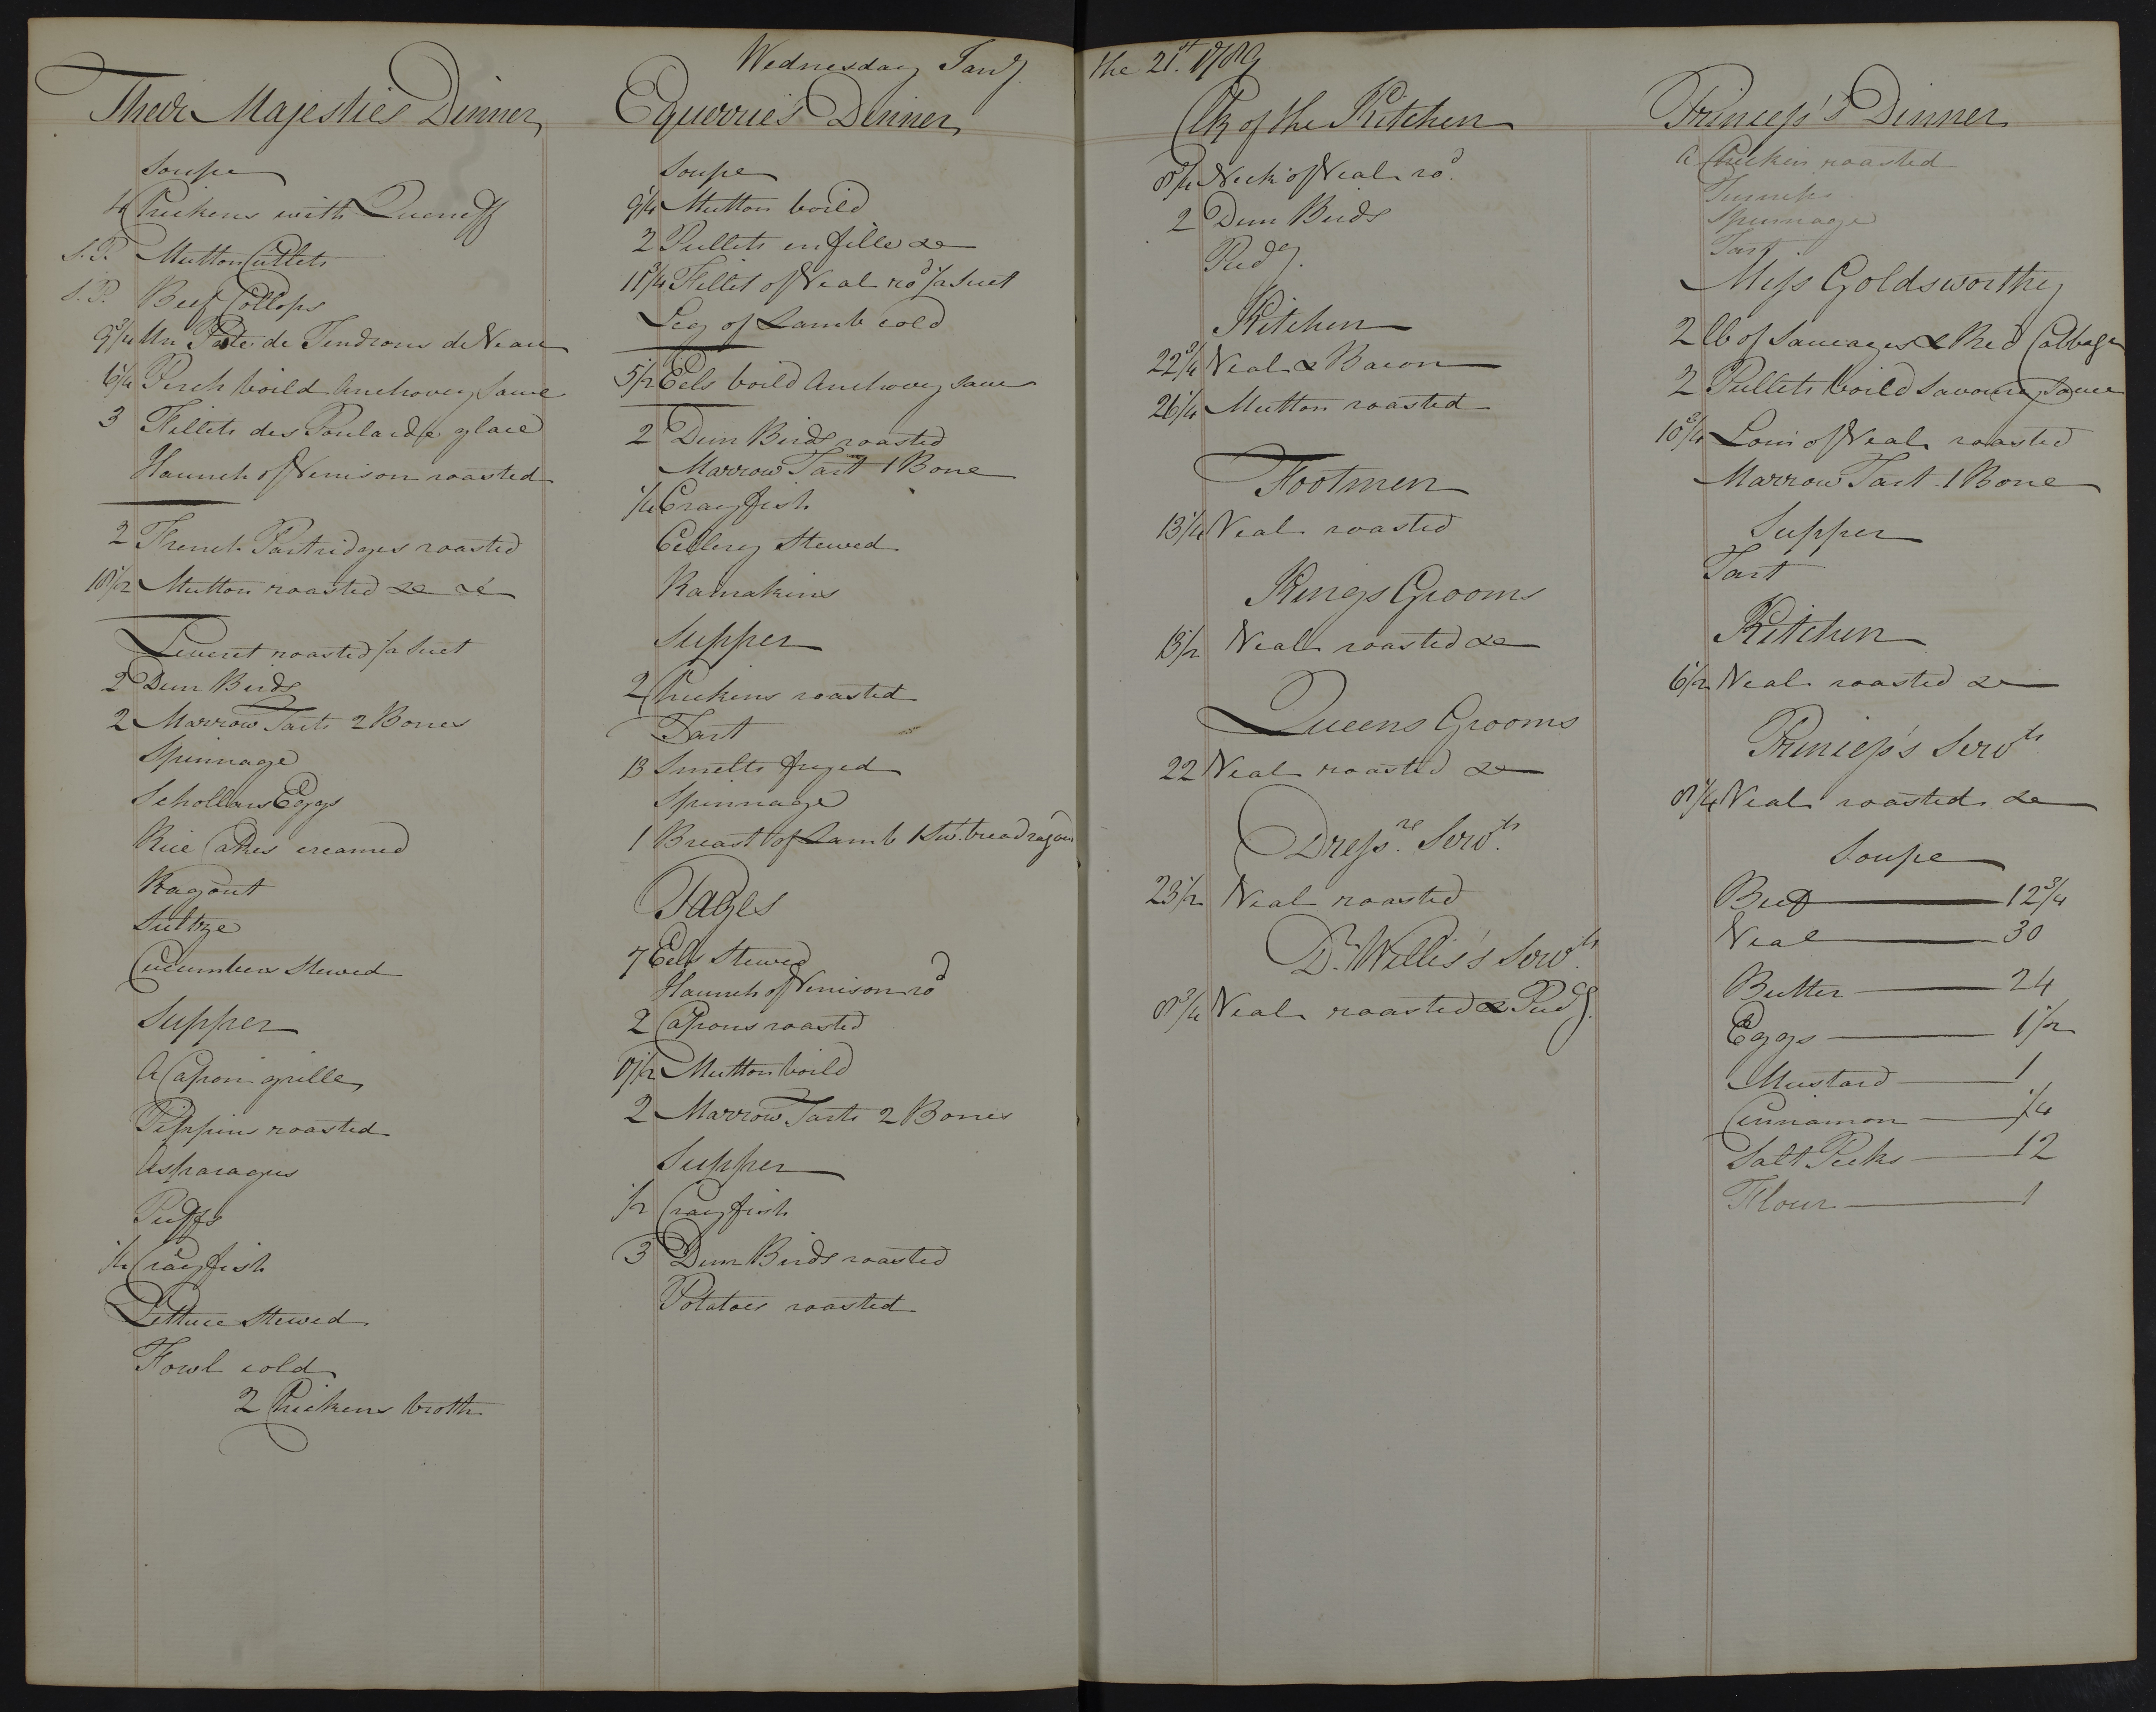 Wednesday Jany.
Their Majesties Dinner
Soupe
4 Chickens with Queneff
S.P. Mutton Cutlets
S.P. Beef Collops
9 3/4 Un Pate de Tendrons de Veau
6 1/4 Perch boild Anchovey Sauce
3 Fillets des Poularde glace
Haunch of Venison roasted
2 French Partridges roasted
Mutton roasted &c &c
Leveret roasted /a Suet
2 Dun Birds
2 Marrow Tarts 2 Bones
Spinnage
Schollars Eggs
Rice Cakes creamed
Ragout
Sultze
Cucumbers Stewed
Supper
A Capon grille
Pippins roasted
Asparagus
Puffs
Crayfish
Lettuce Stewed
Fowl cold
2 Chickens broth
Equerrie's Dinner
Soupe
9 1/4 Mutton boild
2 Pullets en fille &c
11 3/4 Fillet of Veal rod /a Suet
Leg of Lamb cold
5 1/2 Eels boild Anchovey sauce
2 Dun Birds roasted
Marrow Tart 1 Bone
1/4 Crayfish
Cellery Stewed
Ramakins
Supper
2 Chickens roasted
Tart
13 Smelts fryed
Spinnage
1 Breast of Lamb 1 Sw. bread ragou
Pages
7 Eels Stewed
Haunch of Venison rod
2 Capons roasted
Mutton boild
2 Marrow Tarts 2 Bones
Supper
1/2 Crayfish
3 Dun Birds roasted
Potatoes roasted
the 21st. 1789
Clk of the Kitchen
Neck of Veal rod.
2 Dun Birds
Pudg.
Kitchen
22 3/4 Veal & Bacon
26 1/4 Mutton roasted
Footmen
13 1/4 Veal roasted
Kings Grooms
13 1/2 Veal roasted &c
Queens Grooms
22 Veal roasted &c
Dressrs. Servts.
23 1/2 Veal roasted
Dr. Willis's Servts.
8 3/4 Veal roasted & Pudg.
Princess's Dinner
A Chicken roasted
Turneps
Spinnage
Tart
Miss Goldsworthy
2 lb of Saucages & Red Cabbage
2 Pullets boild Savoury Sauce
10 3/4 Loin of Veal roasted
Marrow Tart 1 Bone
Supper
Tart
Kitchen
6 1/2 Veal roasted &c
Princess's Servts.
8 1/4 Veal roasted &c
Soupe
Beef 12 3/4
Veal 30
Butter 24
Eggs 1 1/2
Mustard 1
Cinnamon 1/4
Salt Pecks 12
Flour 1